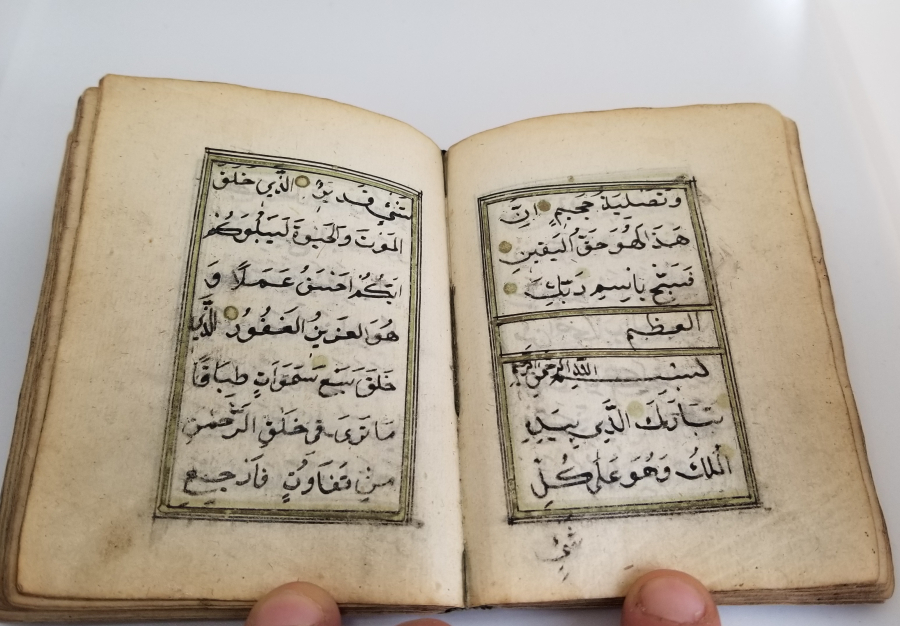 وَتَصْلِيَةُ جَحِيمٍ اِنَّ
هَذَا لَهُوَ حَقُّ الْيَقِينِ
فَسَبِّحْ بِاسْمِ رَبِّكَ
العظيم
بسم الله الرحمن الرحيم
تَبَارَكَ الَّذِي بِيَدِهِ
الْمُلْكُ وَهُوَ عَلَى كُلِّ
شئ
شَيْءٍ قَدِيرٌ الَّذِي خَلَقَ
الْمَوْتَ وَالْحَيٰوةَ لِيَبْلُوَكُمْ
اَيُّكُمْ اَحْسَنُ عَمَلًا وَ
هُوَ الْعَزِيزُ الْغَفُورُ الَّذِي
خَلَقَ سَبْعَ سَمَوَاتٍ طِبَاقًا
مَا تَرَى فِي خَلْقِ الرَّحْمَنِ
مِنْ تَفَاوُتٍ فَارْجِعِ